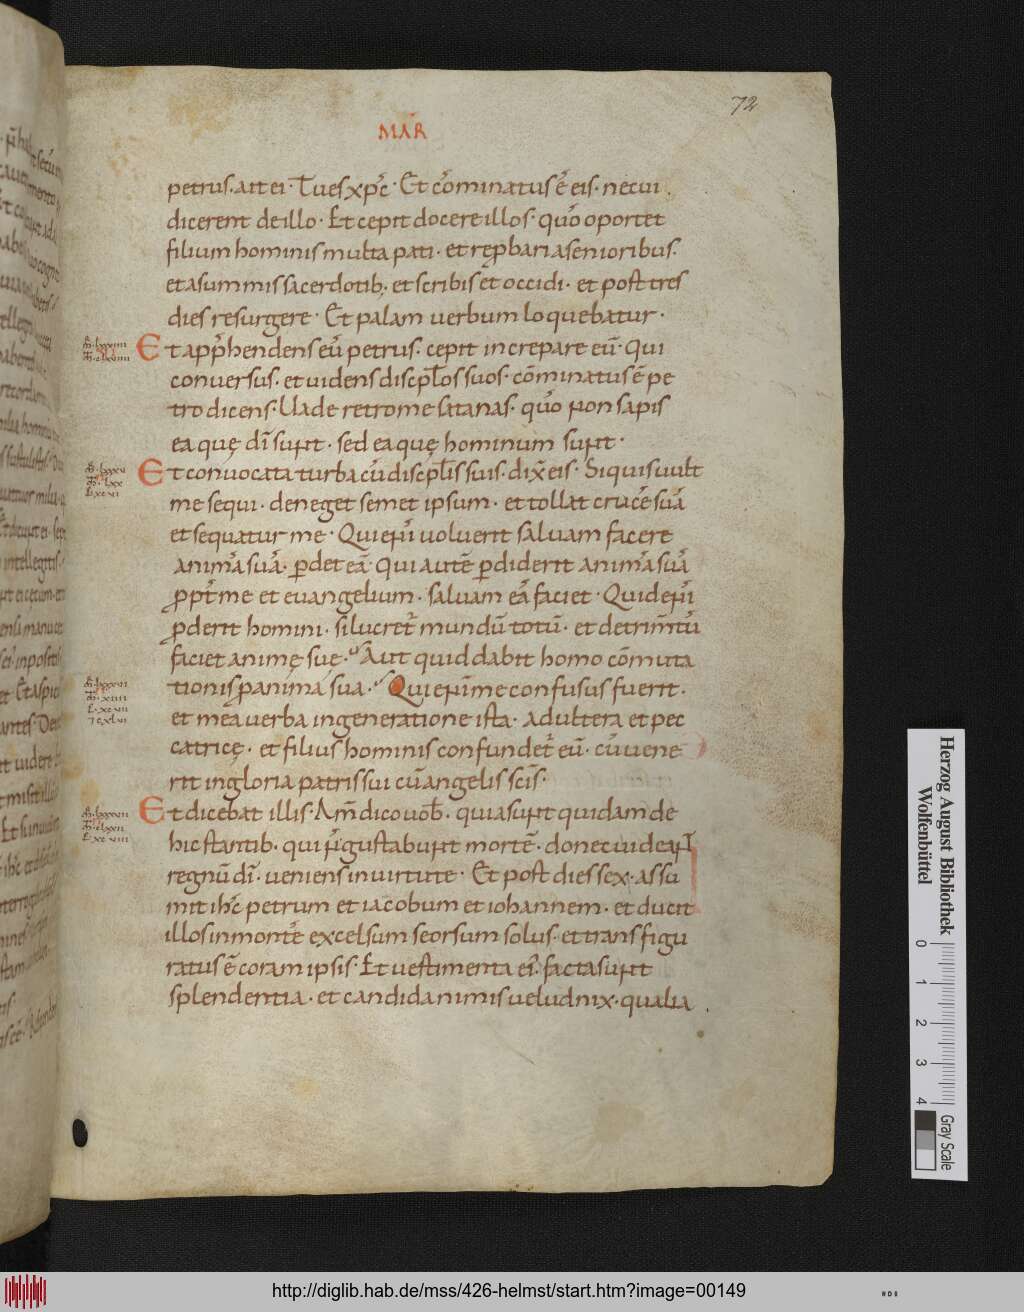 72
MAR̄
petrus. ait ei · Tu es xp̄c · Et cōminatus ē eis · ne cui
dicerent de illo · Et cepit docere illos · quō oportet
filium hominis multa pati · et rep̱bari a senioribus ·
et a summis sacerdotib; · et scribis et occidi · et post tres
dies resurgere · Et palam uerbum loquebatur ·
Et app̄hendens eū petrus · cepit increpare eū · Qui
conuersus · et uidens discpłos suos · cōminatus ē pe
tro dicens · Uade retro me satanas · quō non sapis
ea quę dī sunt · sed ea quę hominum sunt ·
Et conuocata turba cū discpłis suis · dix̄ eis · Si quis uult
me sequi · deneget semet ipsum · et tollat crucē suā
et sequatur me · Qui enī uoluerit saluam facere
animā suā · ꝑdet eā · Qui autē ꝑdiderit animā suā
ꝓpt̄ me et euangelium · saluam eā faciet · Quid enī
ꝓderit homini · si lucret̄ mundū totū · et detrim̄tū
faciet animę suę · Aut quid dabit homo cōmuta
tionis ꝓ anima sua · Qui enī me confusus fuerit ·
et mea uerba in generatione ista · adultera et pec
catricę · et filius hominis confundet̄ eū · cū uene
rit in gloria patris sui cū angelis scīs ·
Et dicebat illis · Am̄ dico uob̄ · quia sunt quidam de
hic stantib · qui n̄ gustabunt mortē · donec uideant
regnū dī · ueniens in uirtute · Et post dies sex · assu
mit ih̄c petrum et iacobum et iohannem · et ducit
illos in montē excelsum seorsum solus · et transfigu
ratus ē coram ipsis · Et uestimenta ei' · facta sunt
splendentia · et candida nimis uelud nix · qualia
Herzog August Bibliothek
Wolfenbüttel
0 1 2 3 4
Gray Scale
http://diglib.hab.de/mss/426-helmst/start.htm?image=00149